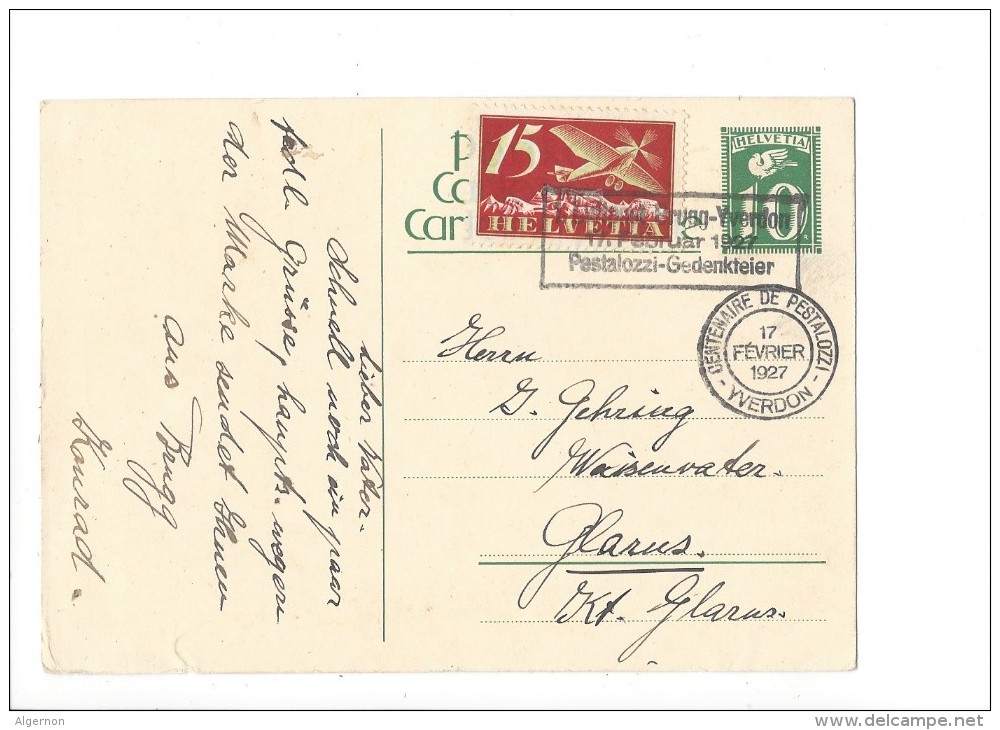 15
HELVETIA
HELVETIA
10
Brugg-Yverdon
17. Februar 1927
Pestalozzi-Gedenkfeier
CENTENAIRE DE PESTALOZZI
17
FÉVRIER
1927
- YVERDON -
Herrn
G. Gehring
Waisenvater.
Glarus.
Kt. Glarus.
Lieber Vater.
Schnell noch ein paar
Grüsse, haupts. wegen
der Marke sendet Ihnen
aus Brugg
Konrad.
Algernon
delcampe.net